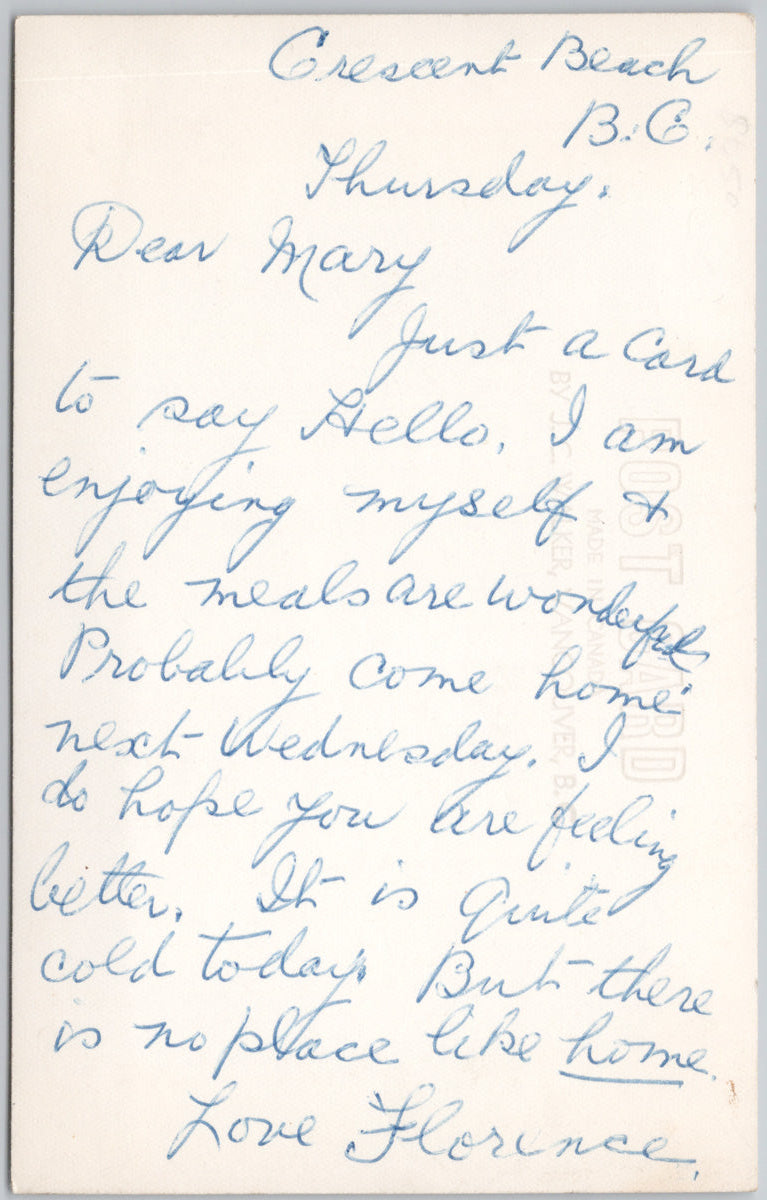 Crescent Beach
B.C.
Thursday.
Dear Mary
Just a Card
to say Hello. I am
enjoying myself &
the meals are wonderful.
Probably come home
next Wednesday. I
do hope you are feeling
better. It is quite
cold today. But there
is no place like home.
Love Florence.
POST CARD
MADE IN CANADA
BY J.C. WALKER, VANCOUVER, B.C.